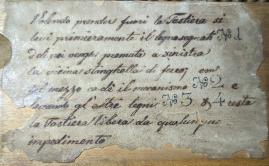 Volendo prendere fuori la Tastiera si
levi primieramente il legno segnato № 1
di poi venghi premuto a sinistra
la vicina stanghetta di ferro, con
tal mezzo cade il mecanismo № 2 e
levando gl'altri legni № 3 & 4 resta
la Tastiera libera da qualunque
impedimento